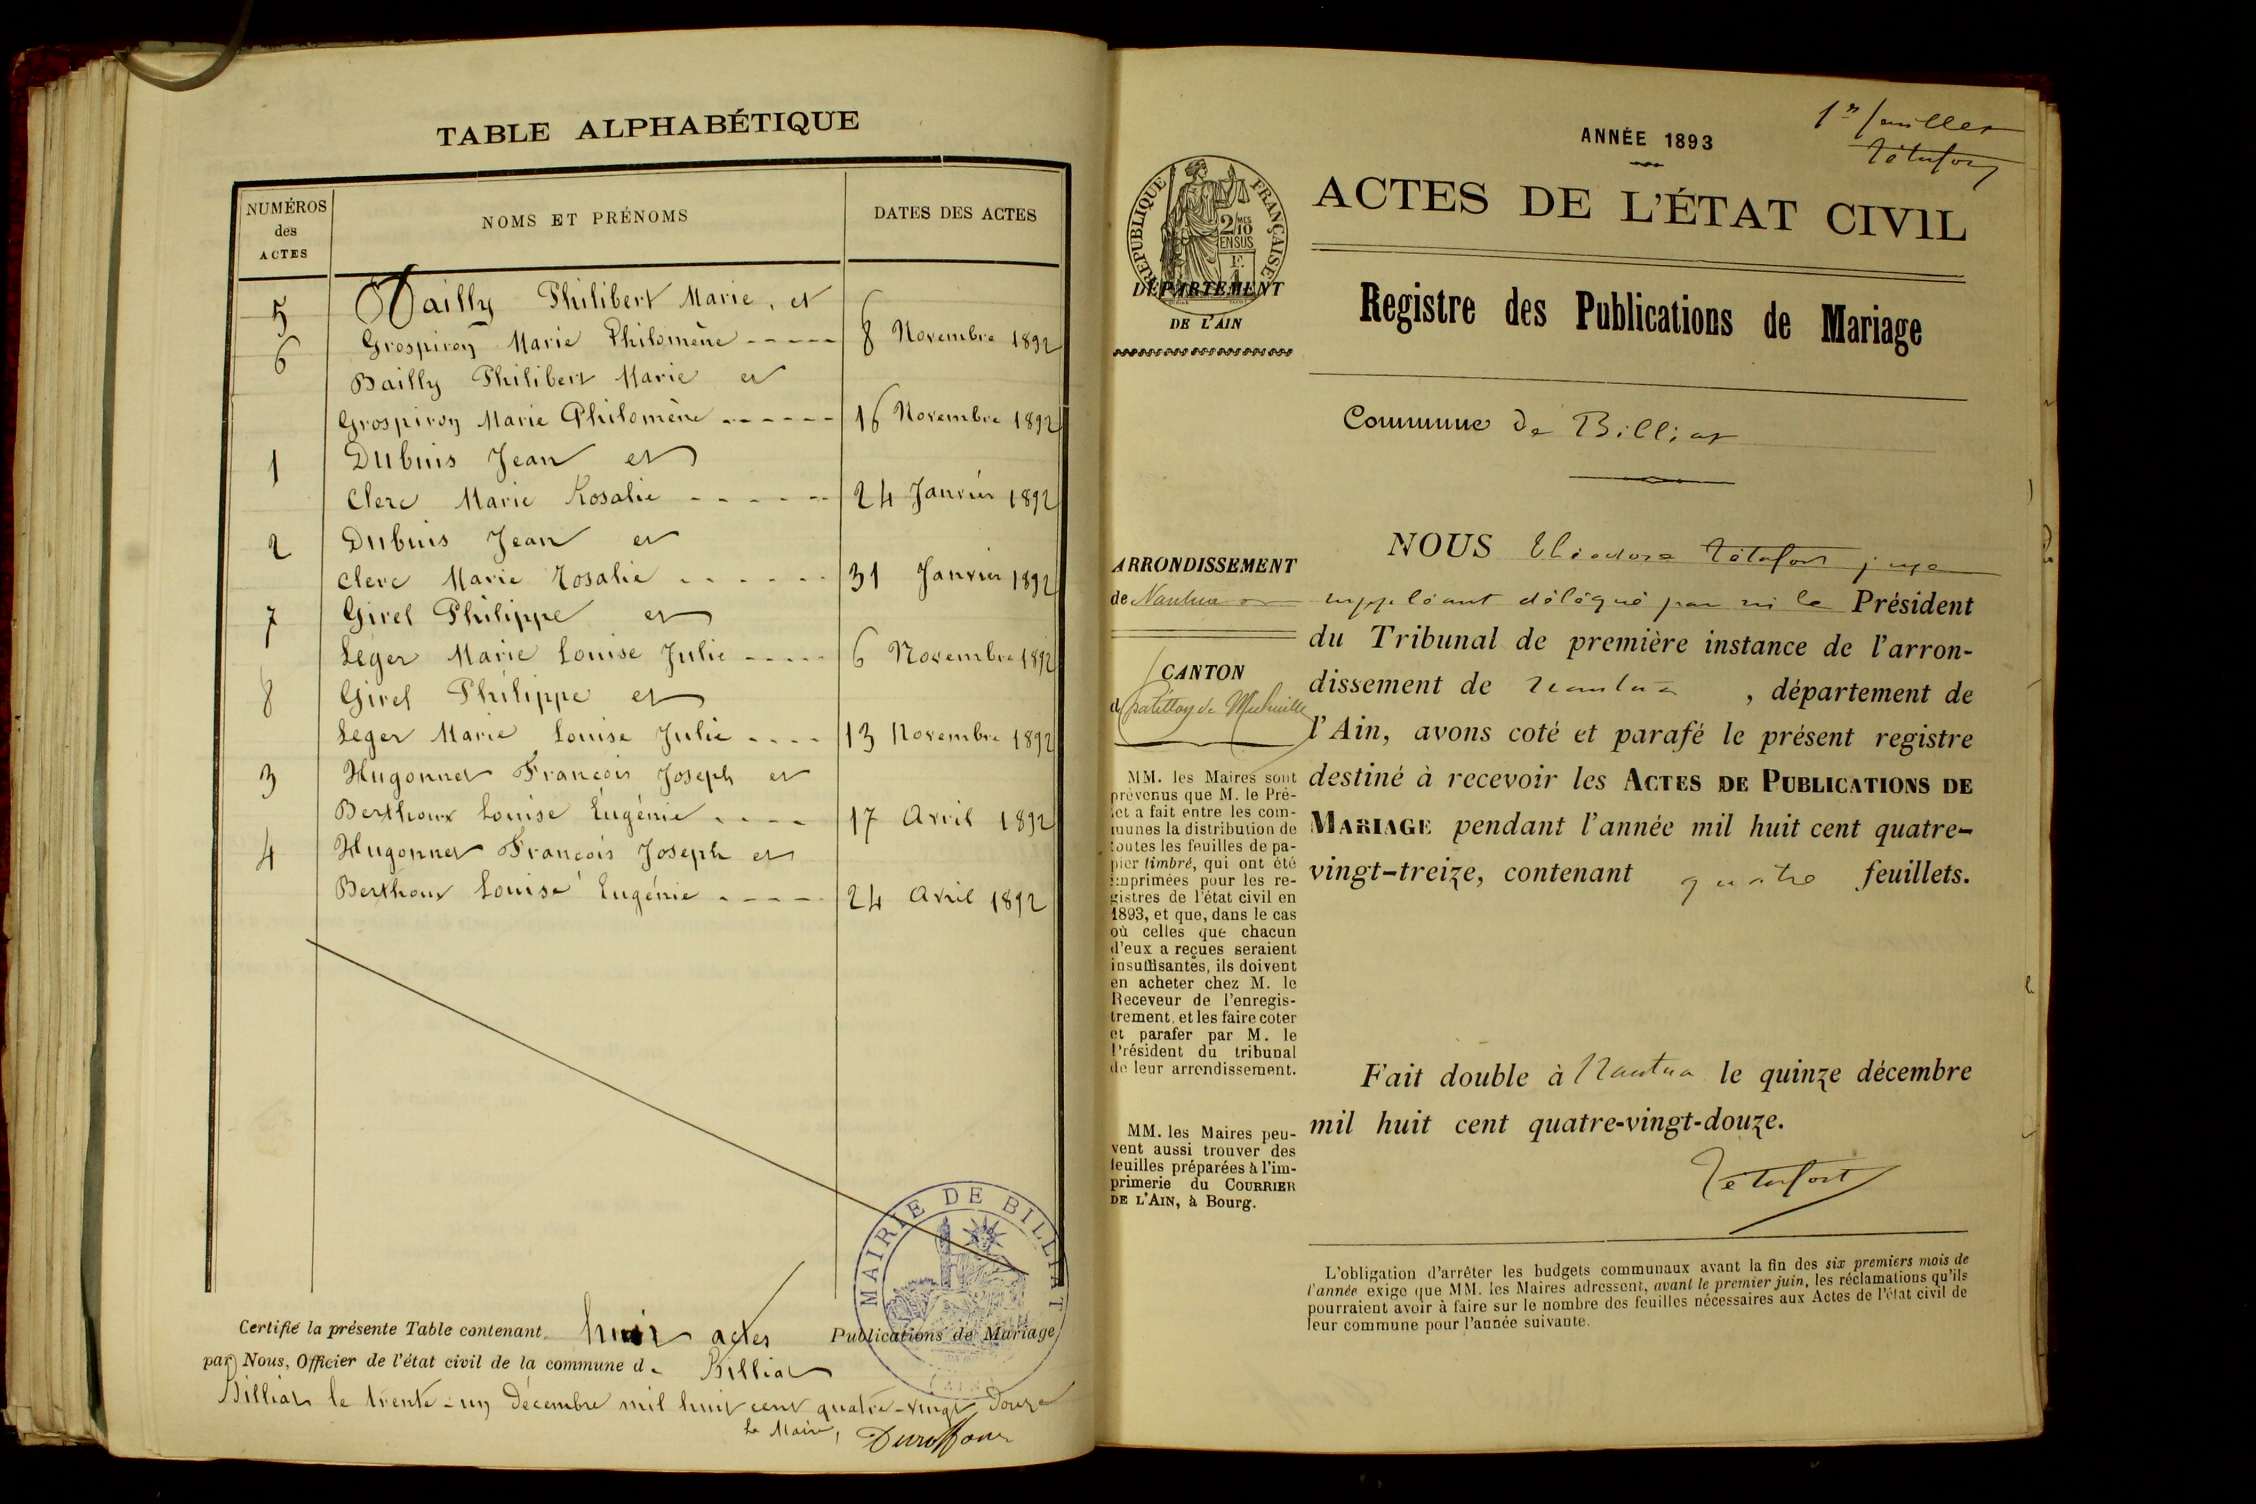 TABLE ALPHABÉTIQUE
NUMÉROS
des
ACTES
NOMS ET PRÉNOMS
DATES DES ACTES
5 Bailly Philibert Marie, et
Grospiron Marie Philomène ----- 8 Novembre 1892
6 Bailly Philibert Marie et
Grospiron Marie Philomène ------ 16 Novembre 1892
1 Dubuis Jean et
Clerc Marie Rosalie ------ 24 Janvier 1892
2 Dubuis Jean et
Clerc Marie Rosalie ------ 31 Janvier 1892
7 Girel Philippe et
Leger Marie Louise Julie ----- 6 Novembre 1892
8 Girel Philippe et
Leger Marie Louise Julie ---- 13 Novembre 1892
3 Hugonnet François Joseph et
Berthoux Louise Eugénie ---- 17 Avril 1892
4 Hugonnet François Joseph et
Berthoux Louise Eugénie ----- 24 Avril 1892
MAIRIE DE BILLIAT
(AIN)
Certifié la présente Table contenant huit actes Publications de Mariage
par Nous, Officier de l'état civil de la commune de Billiat
Billiat le trente-un Décembre mil huit cent quatre-vingt Douze
Le Maire,
1er feuillet
Tétafort
ANNÉE 1893
ACTES DE L'ÉTAT CIVIL
RÉPUBLIQUE FRANÇAISE
2/10 MES
EN SUS
F.
1
DÉPARTEMENT
DE L'AIN
Registre des Publications de Mariage
Commune de Billiat
ARRONDISSEMENT
de Nantua
CANTON
de Chatillon de Michaille
MM. les Maires sont
prévenus que M. le Pré-
fet a fait entre les com-
munes la distribution de
toutes les feuilles de pa-
pier timbré, qui ont été
imprimées pour les re-
gistres de l'état civil en
1893, et que, dans le cas
où celles que chacun
d'eux a reçues seraient
insuffisantes, ils doivent
en acheter chez M. le
Receveur de l'enregis-
trement, et les faire coter
et parafer par M. le
Président du tribunal
de leur arrondissement.
MM. les Maires peu-
vent aussi trouver des
feuilles préparées à l'im-
primerie du COURRIER
DE L'AIN, à Bourg.
NOUS Théodore Tétafort juge
suppléant délégué par mr le Président
du Tribunal de première instance de l'arron-
dissement de Nantua, département de
l'Ain, avons coté et parafé le présent registre
destiné à recevoir les ACTES DE PUBLICATIONS DE
MARIAGE pendant l'année mil huit cent quatre-
vingt-treize, contenant quatre feuillets.
Fait double à Nantua le quinze décembre
mil huit cent quatre-vingt-douze.
Tétafort
L'obligation d'arrêter les budgets communaux avant la fin des six premiers mois de
l'année exige que MM. les Maires adressent, avant le premier juin, les réclamations qu'ils
pourraient avoir à faire sur le nombre des feuilles nécessaires aux Actes de l'état civil de
leur commune pour l'année suivante.